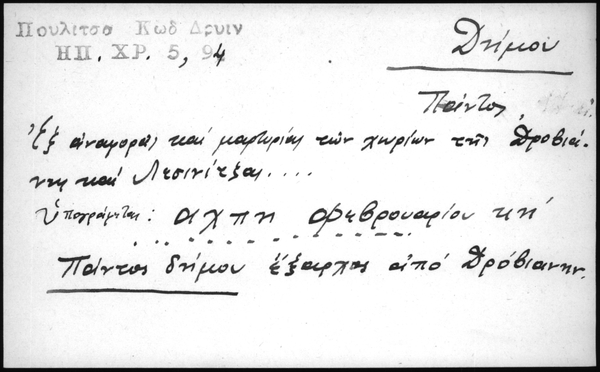 Πουλιτσα Κωδ Δρυιν
ΗΠ. ΧΡ. 5, 94
Δήμου
Πάντος,
Ἐξ ἀναφορᾶς καὶ μαρτυρίας τῶν χωρίων τῆς Δροβιά-
νης καὶ Λεσινίτζας....
Ὑπογράφεται: αχπη φεβρουαρίου κη'
Πάντος δήμου ἔξαρχος ἀπό Δρόβιανην.